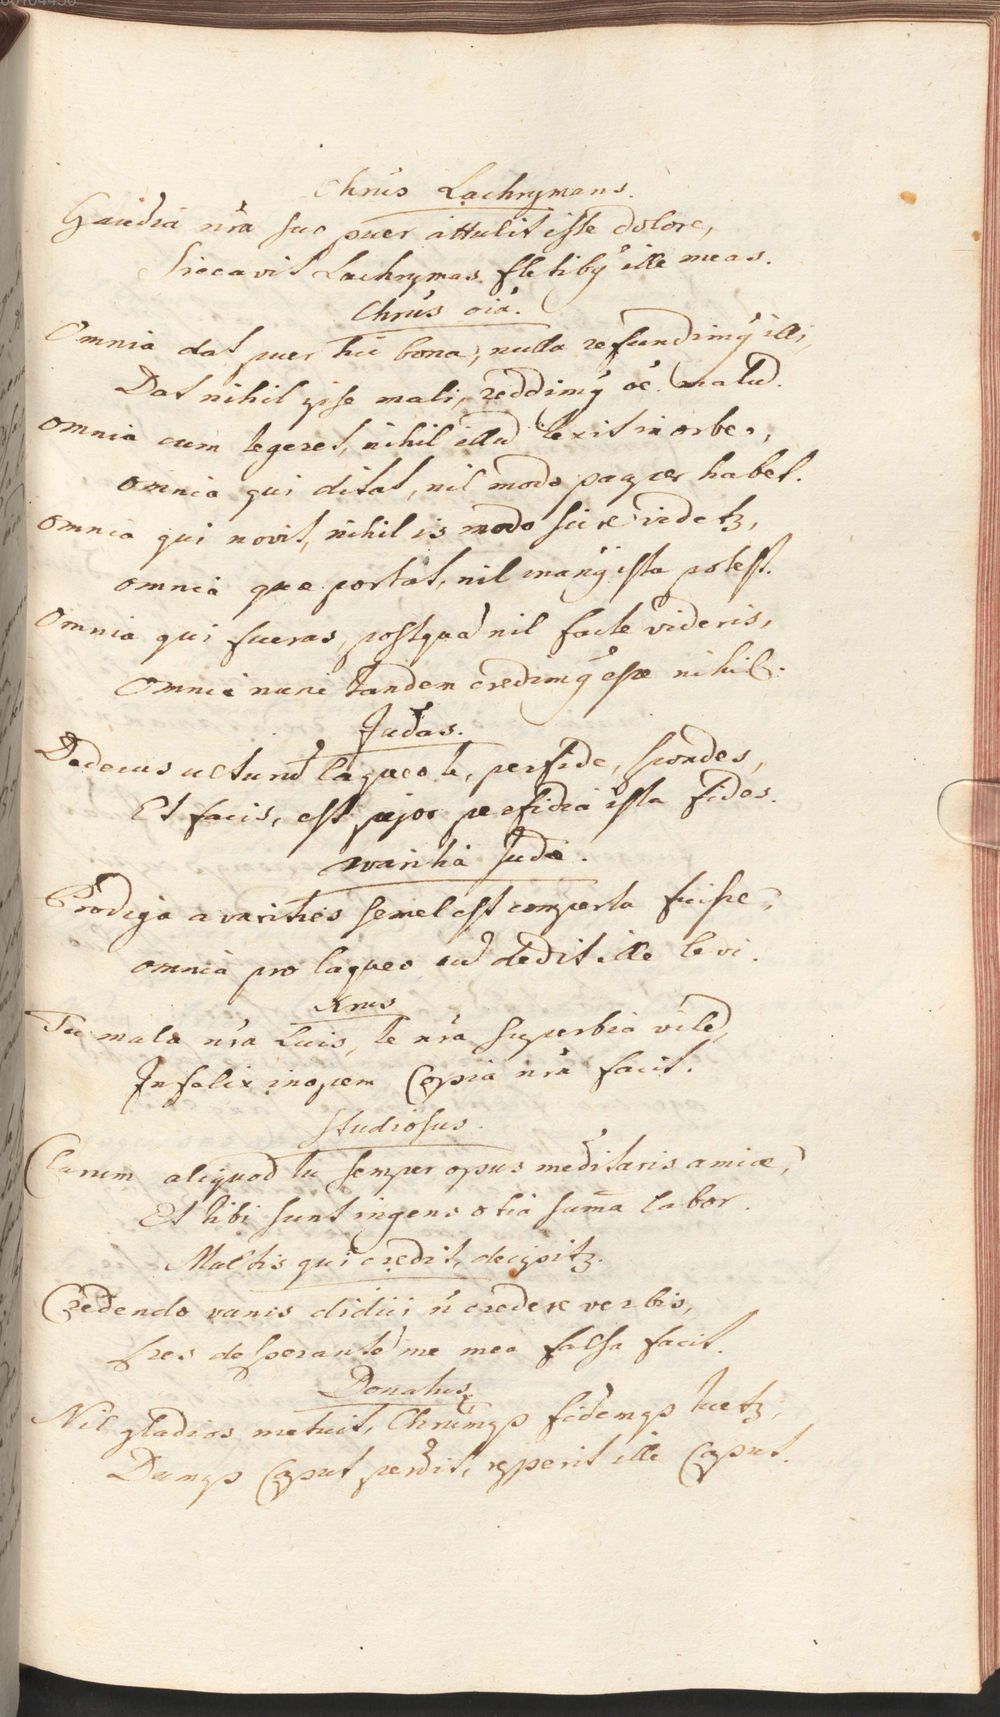 Chrūs Lachrymans.
Gaudia nr̄a suo puer attulit iste dolore,
Siccavit Lachrymas fletibꝫ ille meas.
Chrūs oīa.
Omnia dat puer hic bona, nulla refundimꝰ illi,
Dat nihil ipse mali, reddimꝰ oē malū.
Omnia cum legeret, nihil illud texit in orbe,
omnia qui ditat, nil modo pauper habet.
Omnia qui novit, nihil is modo scire videtꝫ,
omnia quæ portat, nil manꝰ ista potest.
Omnia qui fueras, postquā nil facte videris,
Omnia nunc tandem credimꝰ esse nihil.
Judas.
Dedecus ulturū laqueo te, perfide, spondes,
Et facis, est pejor perfidia ista fides.
Avaritia Judæ.
Prodiga avarities semel est comperta fuisse,
omnia pro laqueo cū dedit ille levi.
Xrus
Tu mala nr̄a Luis, te nr̄a superbia vilē,
Infelix inopem Copia nr̄a facit.
Studiosus.
Clarum aliquod tu semper opus meditaris amice,
Et tibi sunt ingens otia sum̄a labor.
Multis qui credit, decipitꝫ.
Credendo vanis didici n̄ credere verbis,
spes desperantē me mea falsa facit.
Donatus
Nil gladios metuit, Chrūmqꝫ fidemqꝫ tuetꝫ,
Dumqꝫ Caput perdit, repperit ille Caput.